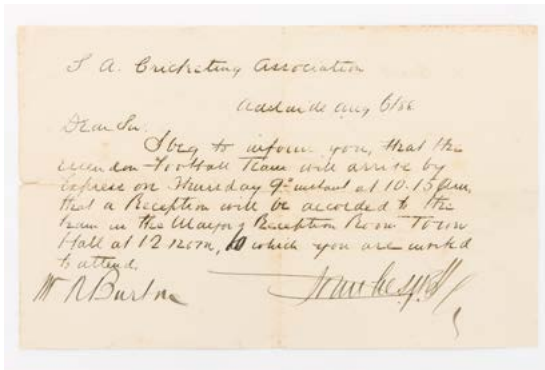 S. A. Cricketing Association
Adelaide Aug 6/88
Dear Sir.
I beg to inform you, that the
Essendon Football Team will arrive by
Express on Thursday 9th instant at 10.15 am,
that a Reception will be accorded to the
team in the Mayors Reception Room Town
Hall at 12 noon, to which you are invited
to attend.
Mr R Burton